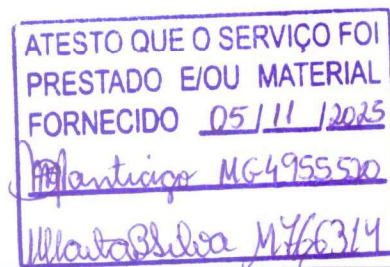 ATESTO QUE O SERVIÇO FOI
PRESTADO E/OU MATERIAL
FORNECIDO 05/11/2025
MG4955520
M766314